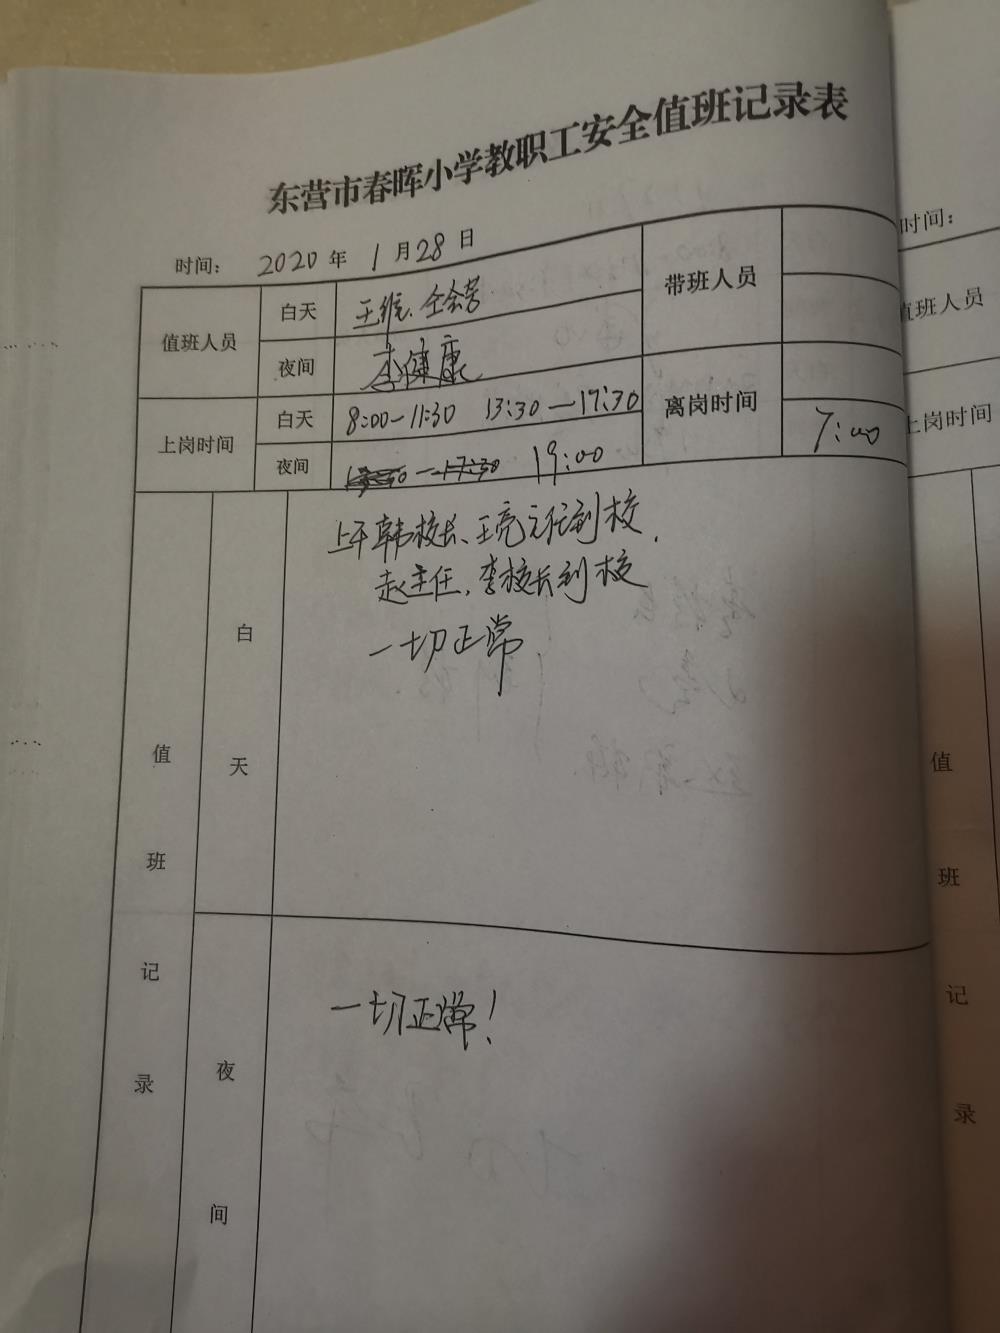 东营市春晖小学教职工安全值班记录表
时间： 2020 年 1 月 28 日
值班人员
白天
王维、
夜间
李健康
带班人员
上岗时间
白天
8:00—11:30 13:30—17:30
夜间
19:00
离岗时间
7:00
值班记录
白天
上午韩校长、王亮主任到校，
赵主任，李校长到校
一切正常
夜间
一切正常！
时间：
值班人员
上岗时间
值班记录